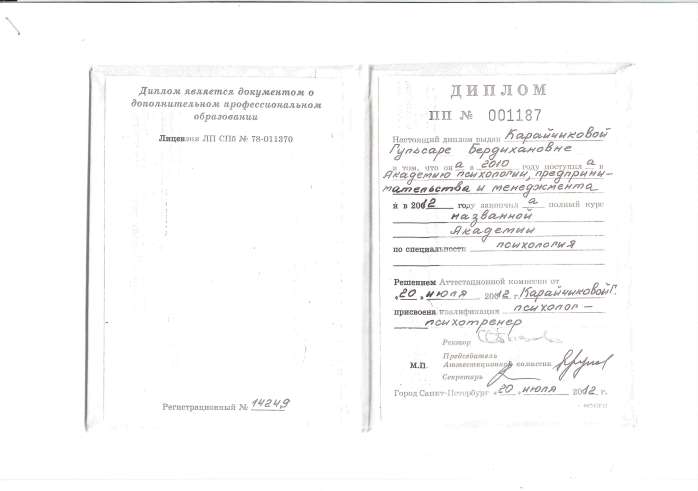 Диплом является документом о
дополнительном профессиональном
образовании
Лицензия ЛП СПб № 78-011370
Регистрационный № 14249
ДИПЛОМ
ПП № 001187
Настоящий диплом выдан Карайчиковой
Гульсаре Бердихановне
в том, что он а в 2010 году поступил а в
Академию психологии, предприни-
мательства и менеджмента
и в 2012 году закончил а полный курс
названной
Академии
по специальности психология
Решением Аттестационной комиссии от
„20„ июля 2012 г. Карайчиковой Г.
присвоена квалификация психолог –
психотренер
Ректор
Председатель
М.П. Аттестационной комиссии
Секретарь
Город Санкт-Петербург „20„ июля 2012 г.